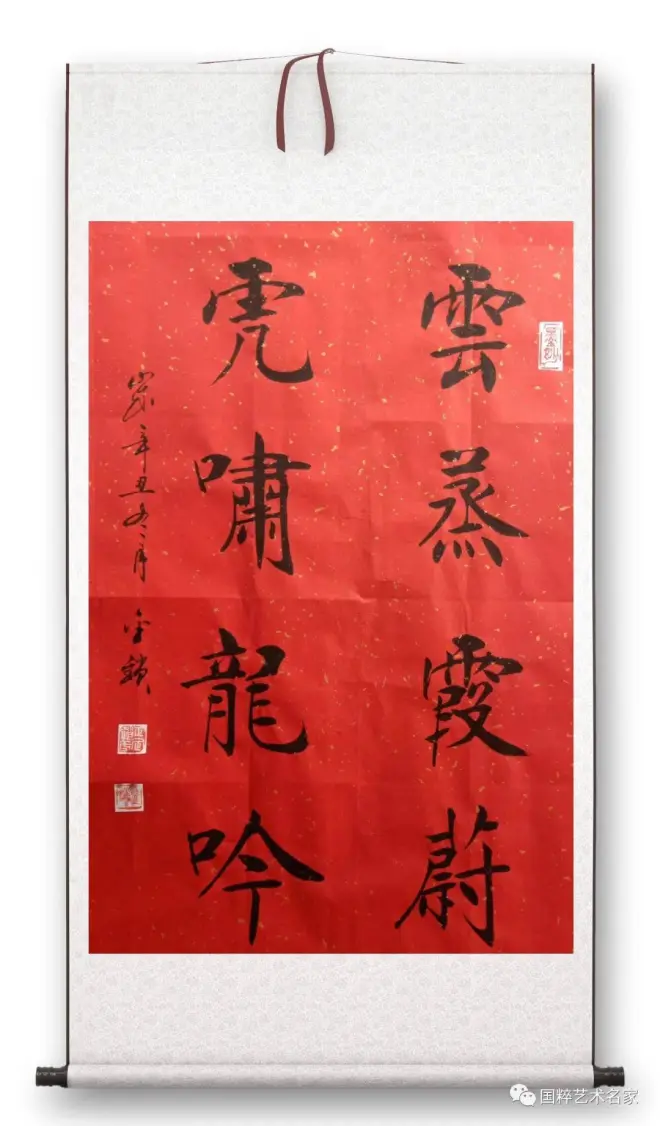 雲蒸霞蔚
虎嘯龍吟
歲辛丑冬月 金鎖
国粹艺术名家